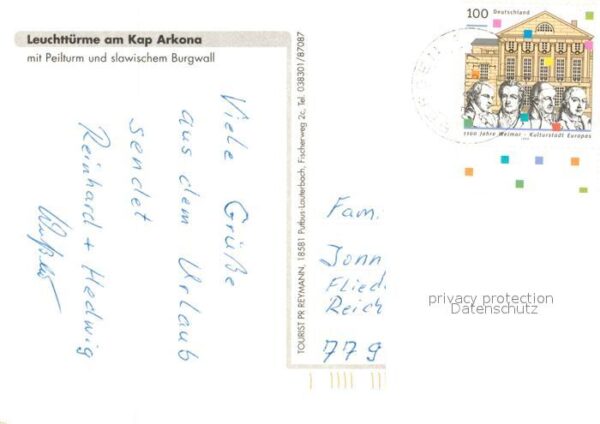 Leuchttürme am Kap Arkona
mit Peilturm und slawischem Burgwall
Viele Grüße
aus dem Urlaub
sendet
Reinhard + Hedwig
TOURIST PR REYMANN, 18581 Putbus-Lauterbach, Fischerweg 2c, Tel. 038301/87087
100 Deutschland
1100 Jahre Weimar - Kulturstadt Europas
Fam.
Jonn
Flied
Reich
779
privacy protection
Datenschutz